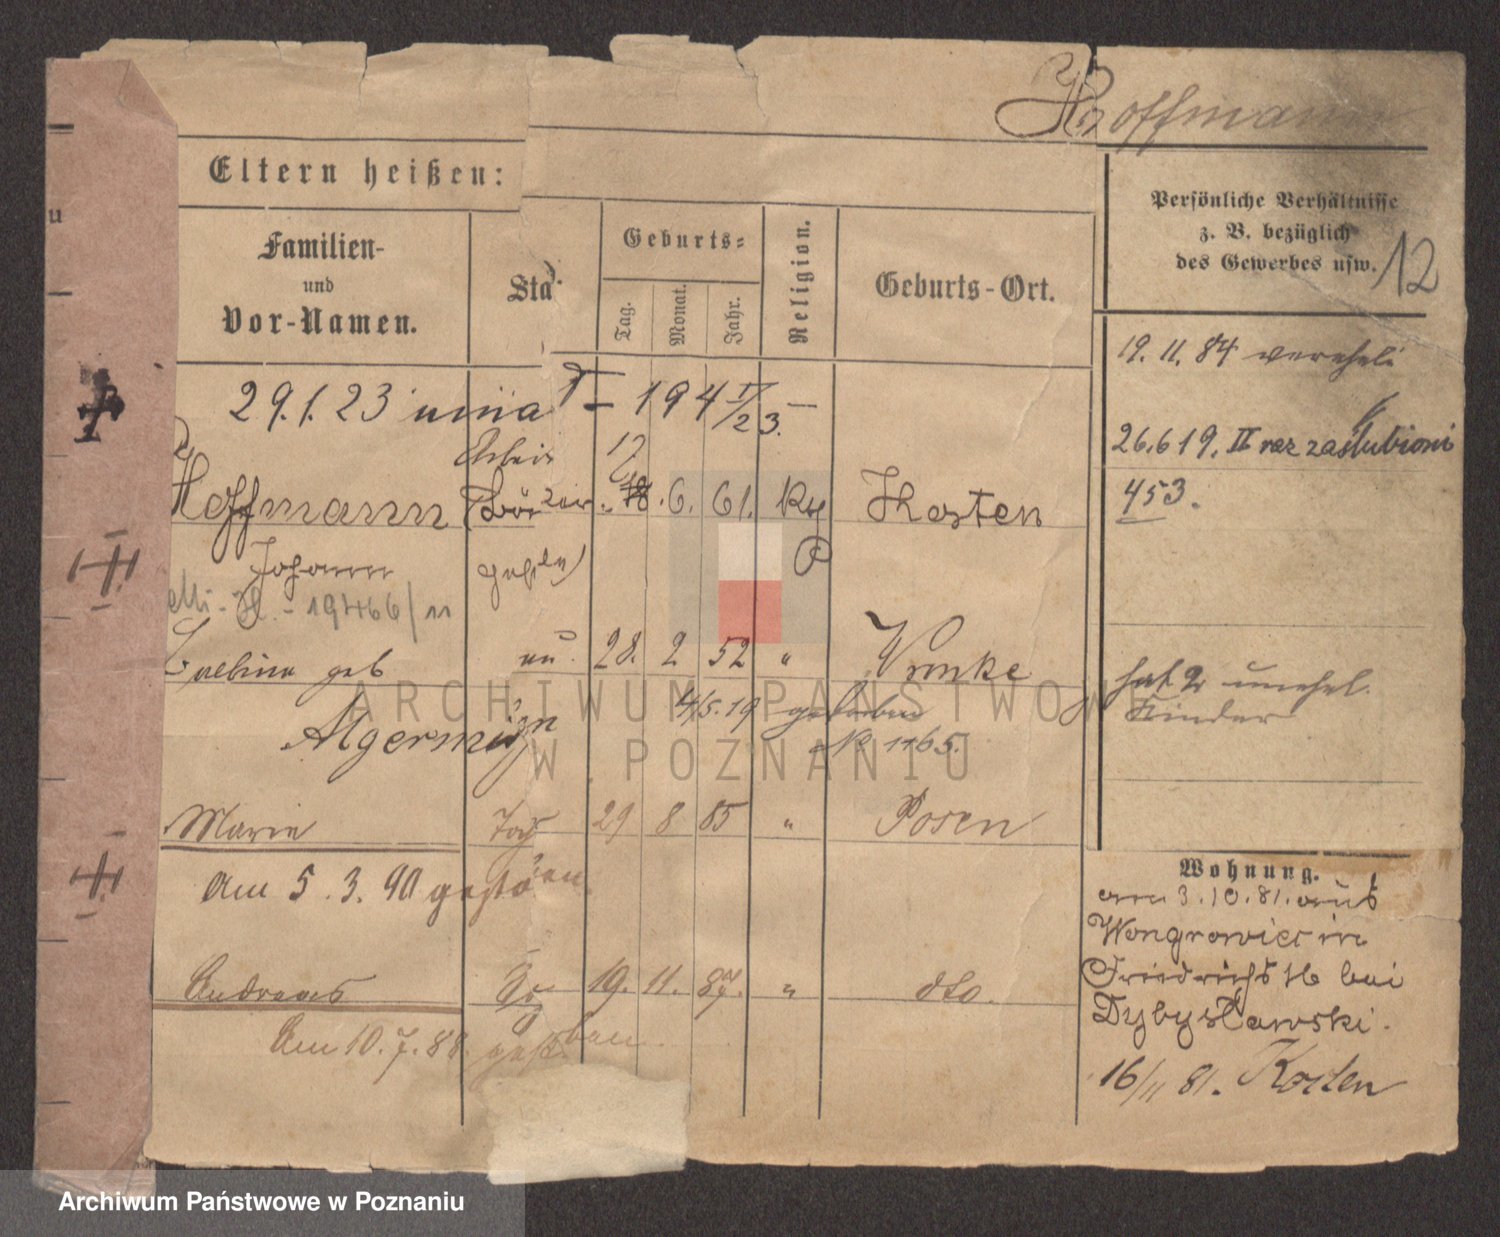 Hoffmann
Eltern heißen:
Familien-
und
Vor-Namen.
Sta
Geburts-
Tag.
Monat.
Jahr.
Religion.
Geburts-Ort.
Persönliche Verhältnisse
z. B. bezüglich
des Gewerbes usw.
12
29.1.23 - 194 1/23.
19. 11. 84 verehel.
26.6 19. II raz zaślubioni
453.
Arbeit 17
Hoffmann 6. 61. Kath Kosten
Johann
19466/11
geb 28. 2 52 " Wronke
4/5.19 gestorben
№ 1165.
Algermißzn
hat 2 unehel.
Kinder
Marie 29 8 85 " Posen
Am 5.3.90 gestorben
Andreas So 19. 11. 87. " dto.
Am 10.7.88 gestorben
Wohnung.
am 3.10.81. aus
Wongrowiec in
Friedrichst 16 bei
Dybysławski.
16/11 81. Kosten
ARCHIWUM PAŃSTWOWE
W POZNANIU
Archiwum Państwowe w Poznaniu